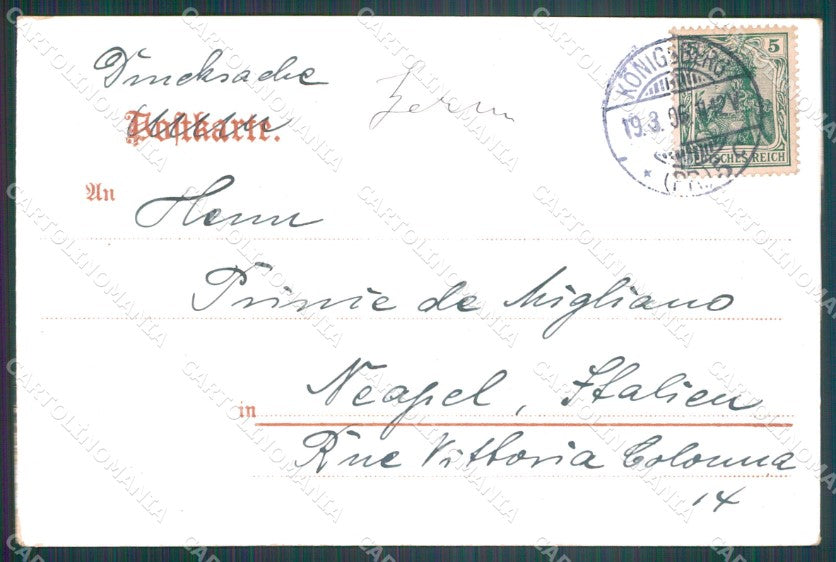 Drucksache
Postkarte.
An
Herrn
Prinie de Migliano
in Neapel, Italien
Rue Vittoria Colonna
14
KÖNIGSBERG
19.3.06
(PR.) 5
5
DEUTSCHES REICH
CARTOLINOMANIA